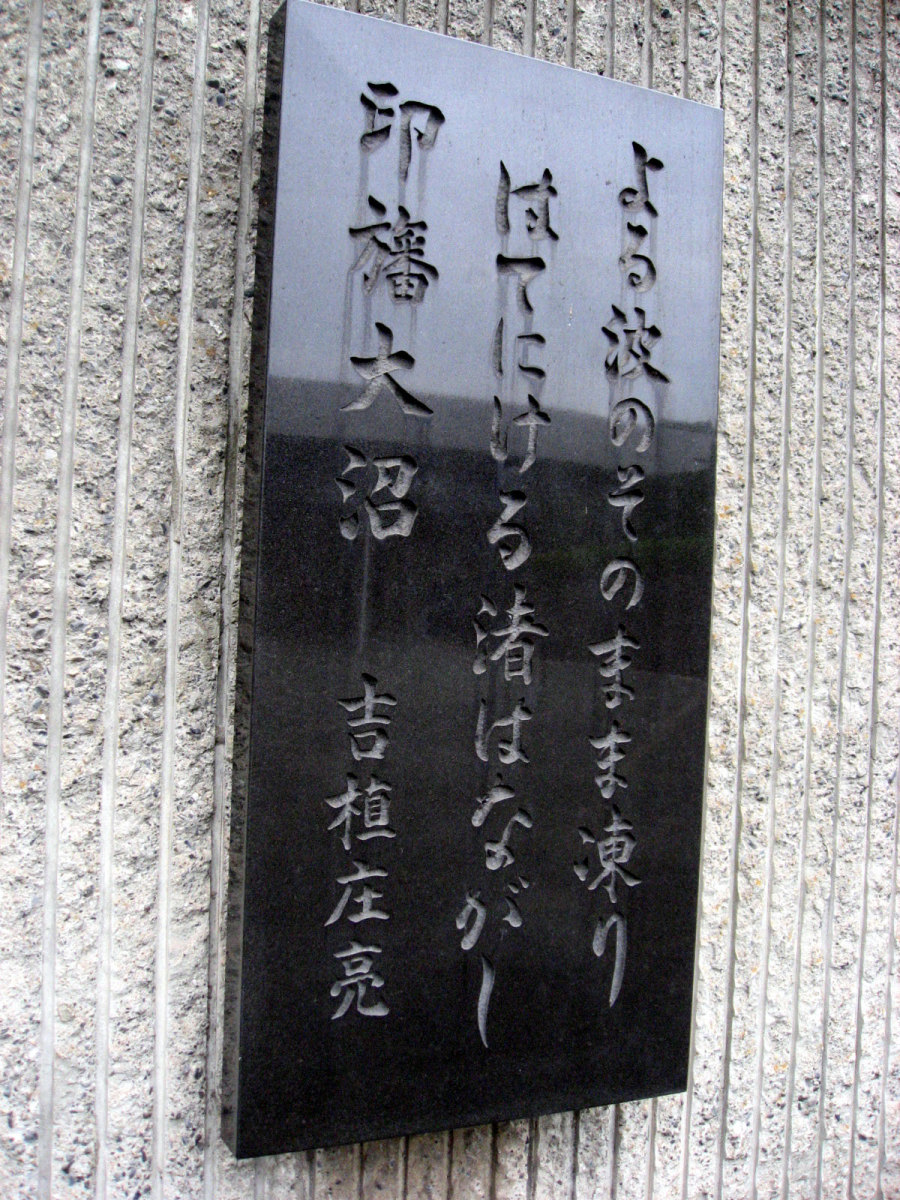 よる波のそのまま凍り
はてにける渚はながし
印旛大沼 吉植庄亮